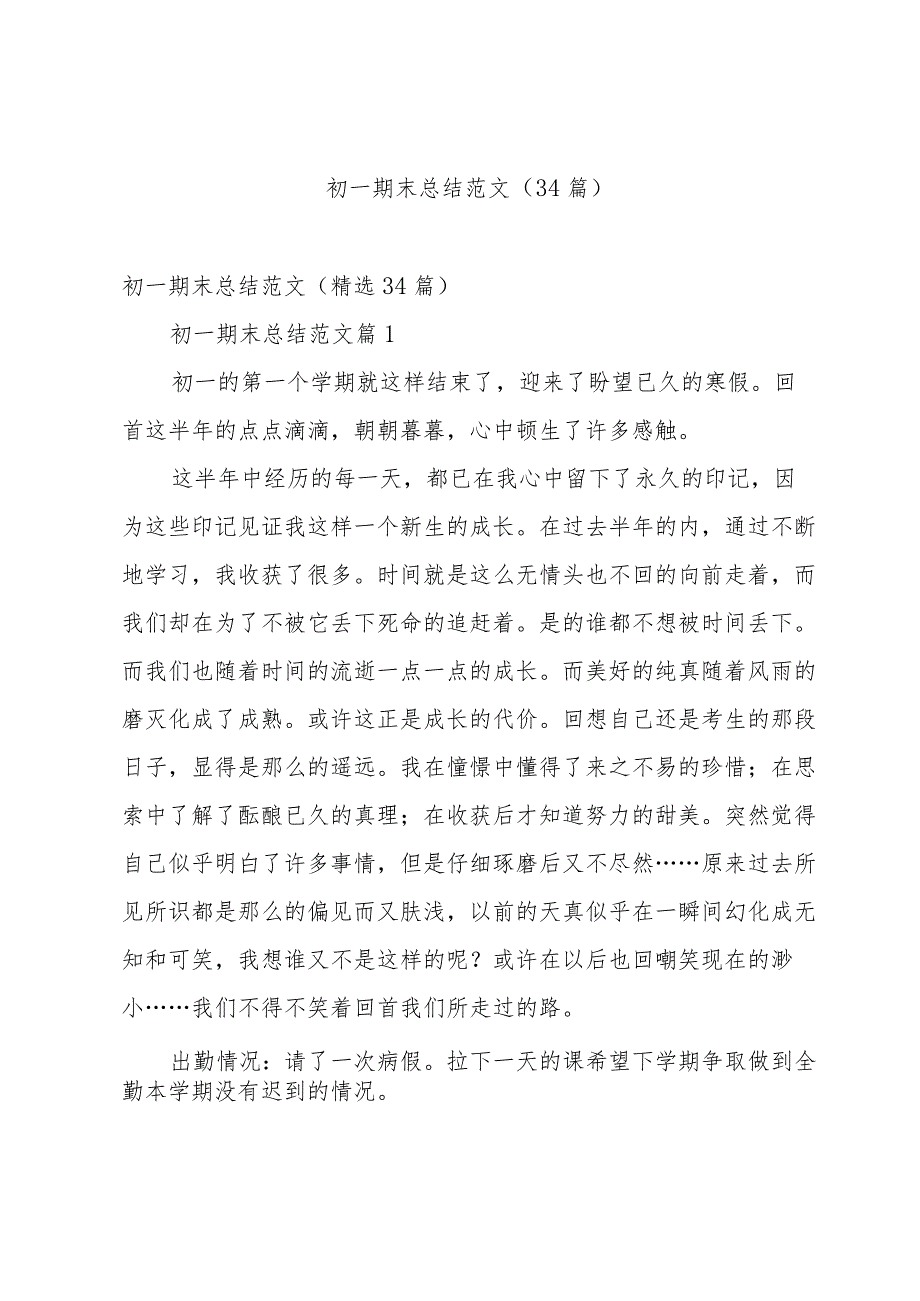 初一期末总结范文（34篇）
初一期末总结范文（精选34篇）
初一期末总结范文篇1
初一的第一个学期就这样结束了，迎来了盼望已久的寒假。回
首这半年的点点滴滴，朝朝暮暮，心中顿生了许多感触。
这半年中经历的每一天，都已在我心中留下了永久的印记，因
为这些印记见证我这样一个新生的成长。在过去半年的内，通过不断
地学习，我收获了很多。时间就是这么无情头也不回的向前走着，而
我们却在为了不被它丢下死命的追赶着。是的谁都不想被时间丢下。
而我们也随着时间的流逝一点一点的成长。而美好的纯真随着风雨的
磨灭化成了成熟。或许这正是成长的代价。回想自己还是考生的那段
日子，显得是那么的遥远。我在憧憬中懂得了来之不易的珍惜；在思
索中了解了酝酿已久的真理；在收获后才知道努力的甜美。突然觉得
自己似乎明白了许多事情，但是仔细琢磨后又不尽然……原来过去所
见所识都是那么的偏见而又肤浅，以前的天真似乎在一瞬间幻化成无
知和可笑，我想谁又不是这样的呢？或许在以后也回嘲笑现在的渺
小……我们不得不笑着回首我们所走过的路。
出勤情况：请了一次病假。拉下一天的课希望下学期争取做到全
勤本学期没有迟到的情况。